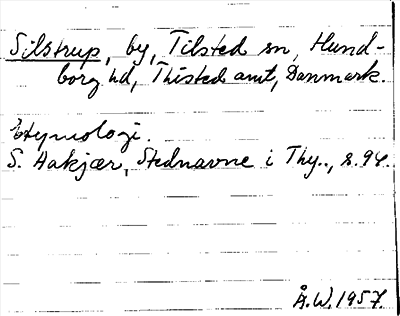 Silstrup, by, Tilsted sn, Hund-
borg hd, Thisted amt, Danmark.
Etymologi.
S. Hakjær, Stednavne i Thy.., s. 94.
Å.W. 1957.